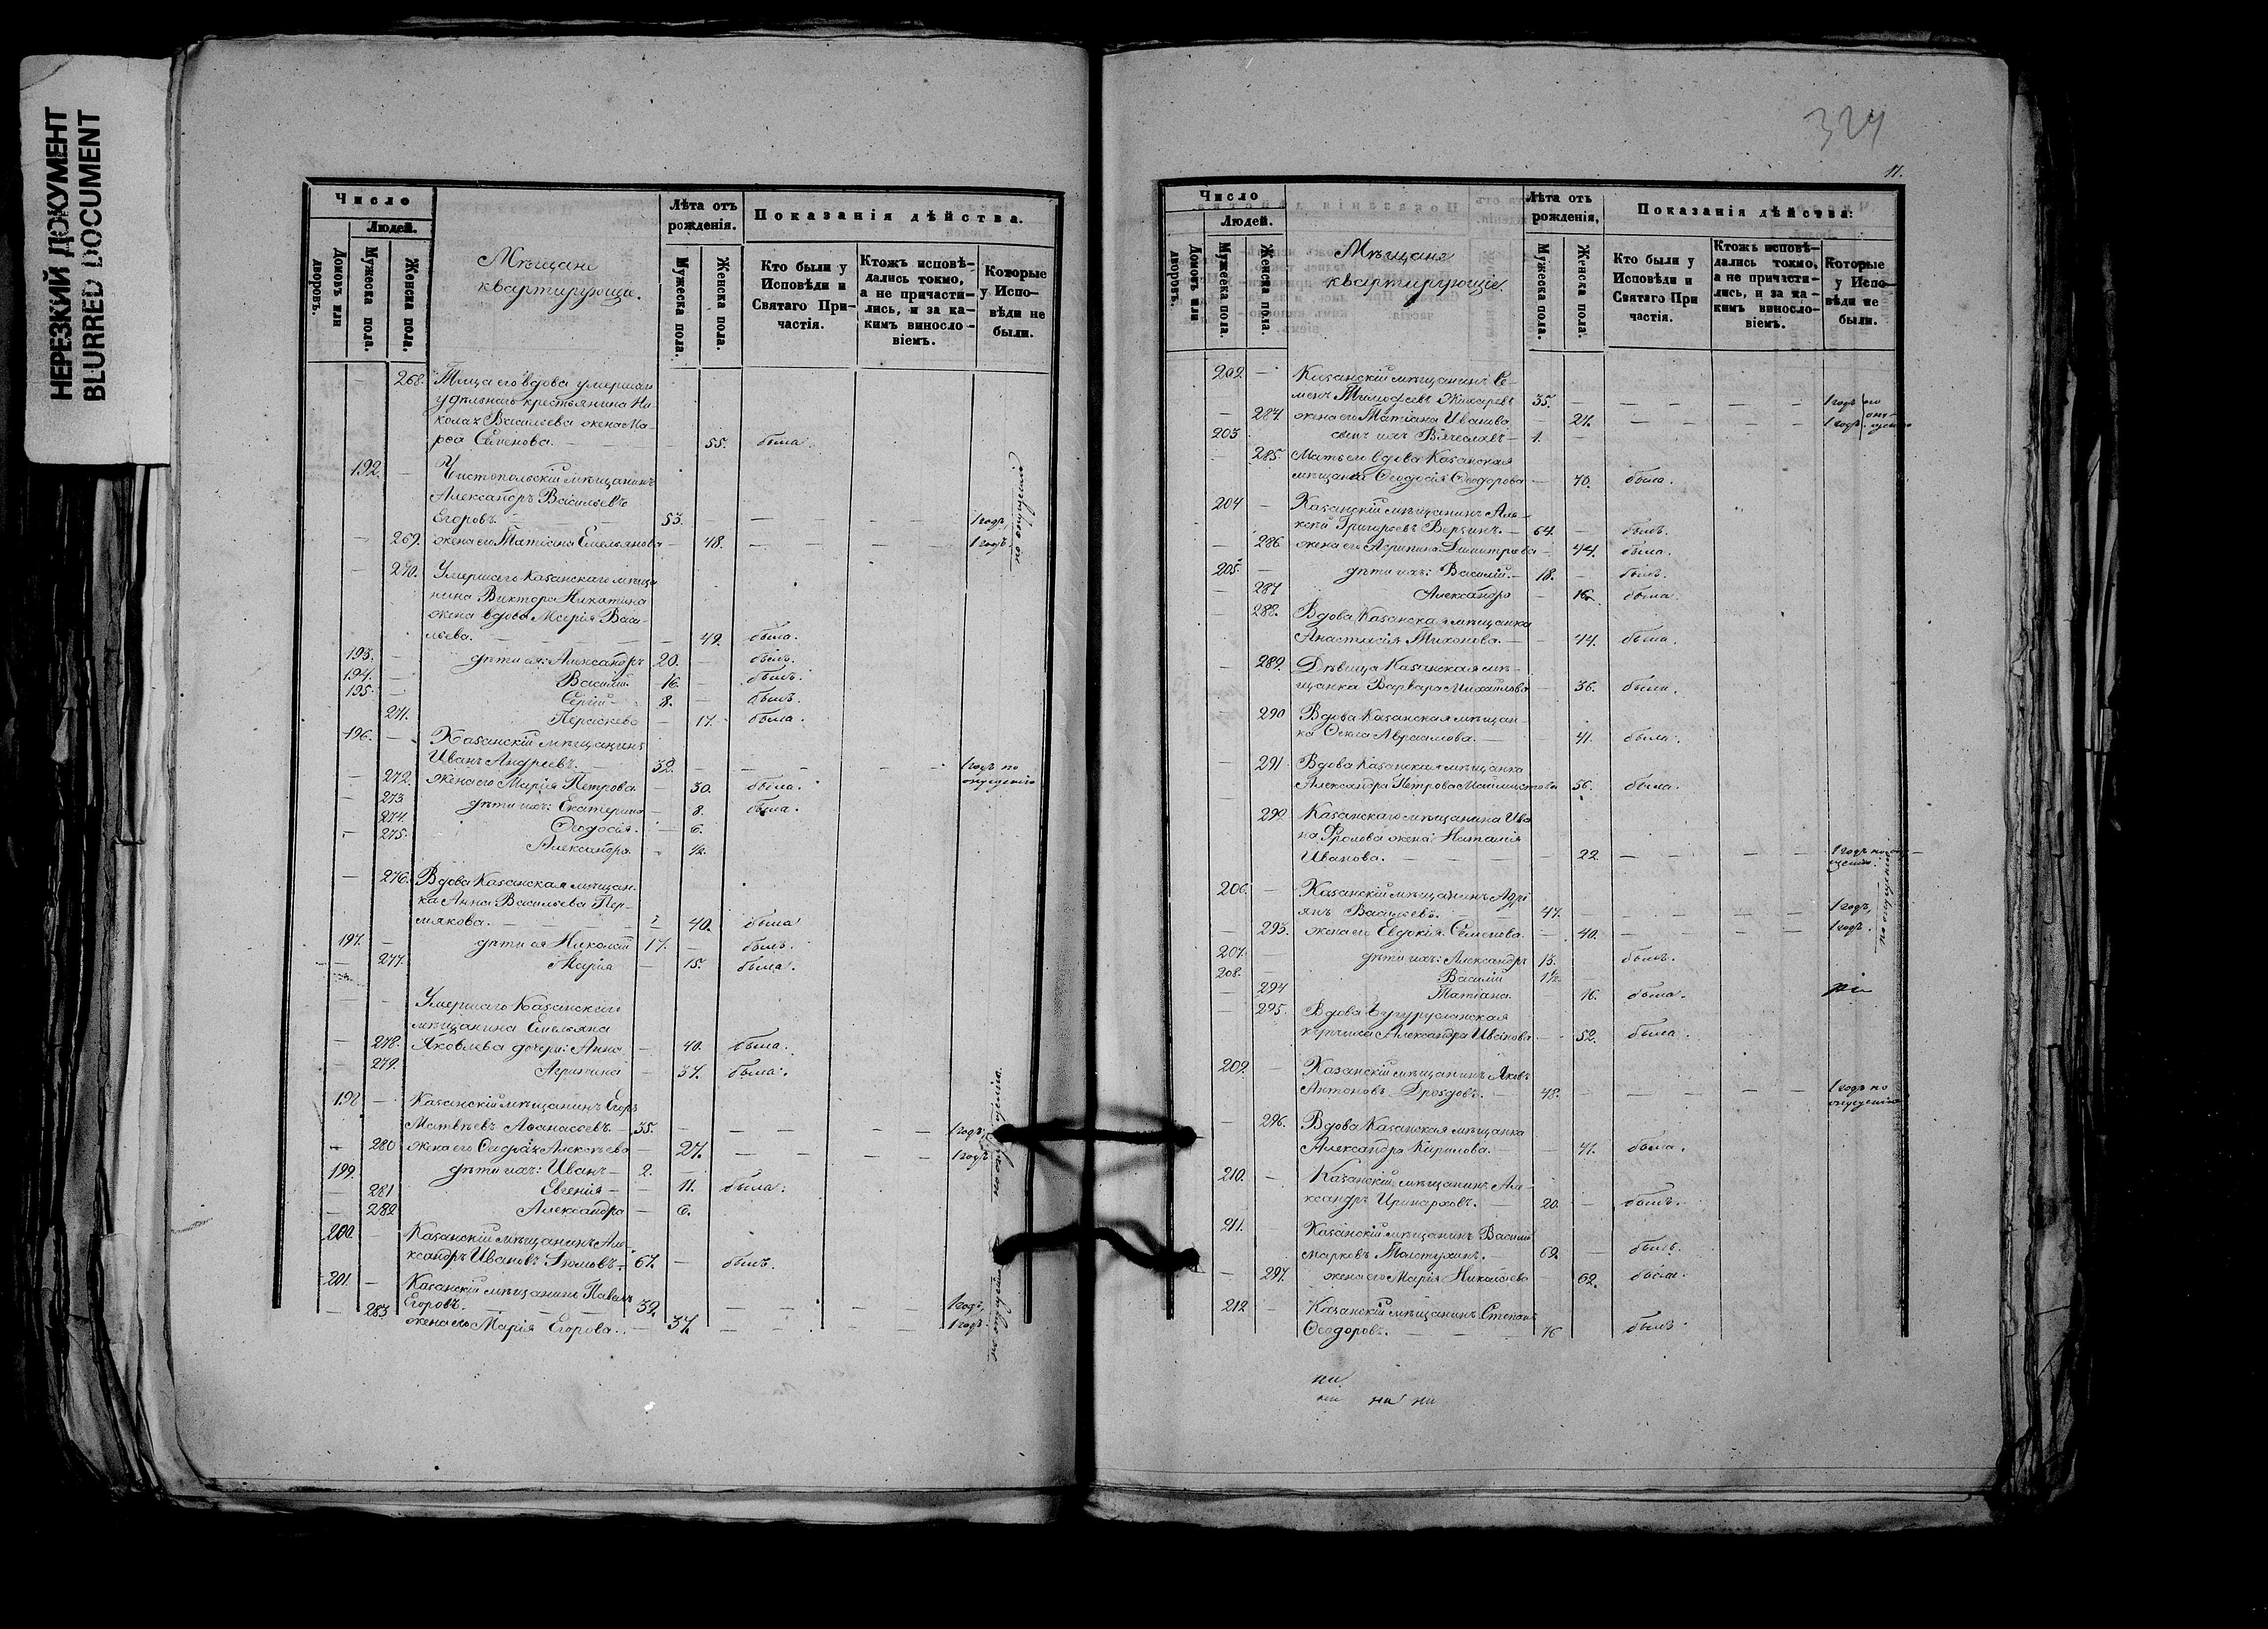 НЕРЕЗКИЙ ДОКУМЕНТ
BLURRED DOCUMENT
Число
Людей.
Домовъ или дворовъ.
Мужеска пола.
Женска пола.
Мѣщане
квартирующіе.
Лѣта отъ рожденія.
Мужеска пола.
Женска пола.
Показанія дѣйства.
Кто были у Исповѣди и Святаго Причастія.
Ктожъ исповѣдались токмо, а не причастились, и за какимъ винословіемъ.
Которые у Исповѣди не были.
268. Теща его вдова умершаго
удѣльнаго крестьянина Ни-
колая Васильева жена Ма-
рѳа Семенова. — 55. была.
192. — Чистопольскій мѣщанинъ
Александръ Васильевъ
Егоровъ. 53. — — — 1 годъ,
269. жена его Татіана Емельянова — 48. — — — 1 годъ.
по опущенію
— 270. Умершаго Казанскаго мѣща
нина Виктора Никитина
жена вдова Марія Васи-
льева. — 49. была.
193. — дѣти ея: Александръ 20. — былъ.
194. — Василій 16. — былъ.
195. — Сергій 8. — былъ.
271. Параскева — 17. была.
196. — Казанскій мѣщанинъ
Иванъ Андреевъ. — 32. — — — 1 годъ по
опущенію
— 272. жена его Марія Петрова — 30. была.
— 273 дѣти ихъ: Екатерина — 8. была.
274. Ѳеодосія. — 6.
— 275. Александра. — ½.
— 276. Вдова Казанская мѣщан-
ка Анна Васильева Пер-
мякова. — 40. была
197. — дѣти ея Николай 17. — былъ.
— 277. Марія — 15. была.
Умершаго Казанскаго
мѣщанина Емельяна
— 278. Яковлева дочери: Анна — 40. была.
279. Агрипина — 37. была.
198 — Казанскій мѣщанинъ Егоръ
Матвѣевъ Аѳанасьевъ. — 35. — — — 1 годъ,
— 280 жена его Алексѣева — 27. — — — 1 годъ
по опущенію
199. дѣти ихъ: Иванъ — 2. —
— 281 Евгенія — — 11. была.
— 282 Александра — 6.
200. — Казанскій мѣщанинъ Але-
ксандръ Ивановъ 67. — былъ.
201. — Казанскій мѣщанинъ Павелъ
Егоровъ. 39 — — — 1 годъ,
— 283 жена его Марія Егорова. — 37. — — — 1 годъ.
по опущенію
324
11.
Число
Людей.
Домовъ или дворовъ.
Мужеска пола.
Женска пола.
Мѣщане
квартирующіе.
Лѣта отъ рожденія,
Мужеска пола.
Женска пола.
Показанія дѣйства:
Кто были у Исповѣди и Святаго Причастія.
Ктожъ исповѣдались токмо, а не причастились, и за какимъ винословіемъ.
Которые у Исповѣди не были.
202 — Казанскій мѣщанинъ Се-
менъ Тимоѳеевъ 35. — — — — 1 годъ по
— 284. жена его Татіана Иванова — 21. — — — 1 годъ опу-
щенію
203 — сынъ ихъ Вячеславъ — 1. —
— 285. Мать его вдова Казанская
мѣщанка Ѳеодосія Ѳеодорова — 70. была.
204 — Казанскій мѣщанинъ Але-
ксѣй Григорьевъ 64. — былъ.
— 286 жена его Агрипина Димитріева — 44. была.
205. — дѣти ихъ: Василій. — 18. — былъ.
— 287 Александра — 16. была.
— 288. Вдова Казанская мѣщанка
Анастасія Тихонова. — — 44. была.
— 289. Дѣвица Казанская мѣ-
щанка Варвара Михайлова — 36. была.
— 290 Вдова Казанская мѣщан-
ка Ѳекла Авраамова. — 41. была.
— 291 Вдова Казанская мѣщанка
Александра Петрова 56. была.
— 292 Казанскаго мѣщанина Ива
на Фролова жена Наталія
Иванова. — — — 22 — — — 1 годъ по опу-
щенію
206. — Казанскій мѣщанинъ Адрі
янъ Васильевъ. — 47. — — — 1 годъ,
— 293. жена его Евдокія Семенова. — 40. — — — 1 годъ.
по опущенію
207. — дѣти ихъ: Александръ 13. былъ.
208. — Василій 1½. —
— 294 Татіана. — 16. была.
— 295. Вдова Бугурусланская
купчиха Александра Иванова — 52. была.
209. — Казанскій мѣщанинъ Яковъ
Антоновъ Дроздовъ. — 48. — — — 1 годъ по
опущенію
— 296. Вдова Казанская мѣщанка
Александра Кирилова. — 41. была.
210. — Казанскій мѣщанинъ Але-
ксандръ Иринарховъ. — 20. — былъ.
211. — Казанскій мѣщанинъ Василій
Марковъ Толстухинъ. — 69. — былъ.
— 297. жена его Марія Николаева — 62. была.
212 — Казанскій мѣщанинъ Степанъ
Ѳеодоровъ. — — 76 былъ.
ни
ни ни ни